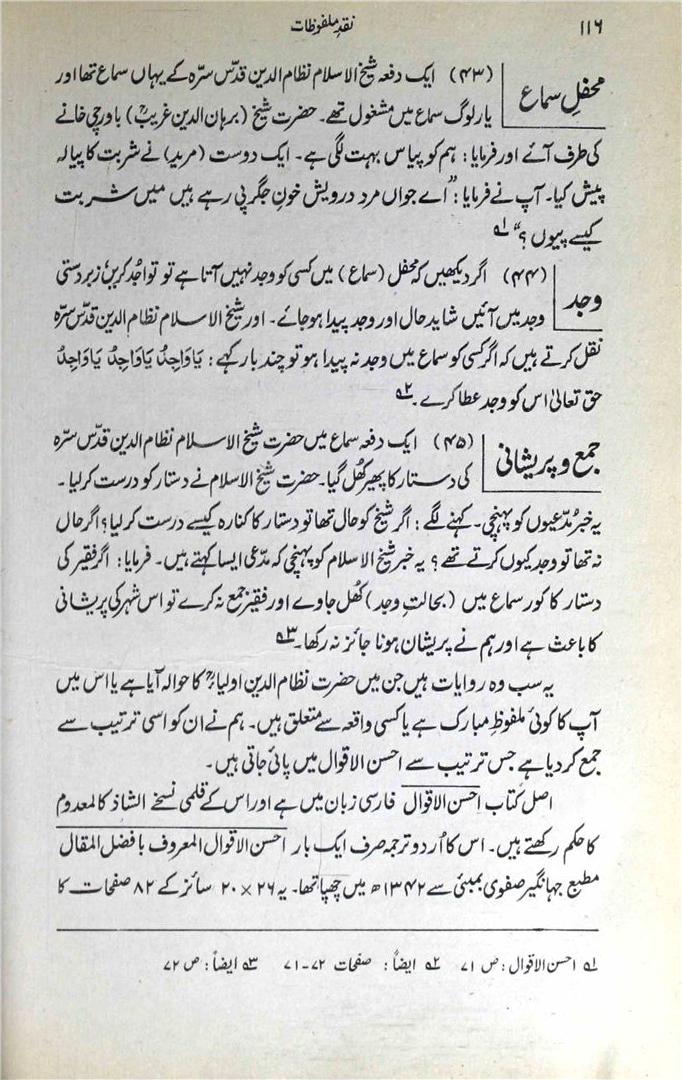 ۱۱۶
نقدِ ملفوظات
محفلِ سماع
(۴۳) ایک دفعہ شیخ الاسلام نظام الدین قدّس سرّہ کے یہاں سماع تھا اور
یار لوگ سماع میں مشغول تھے۔ حضرت شیخ (برہان الدین غریبؒ) باورچی خانے
کی طرف آئے اور فرمایا: ہم کو پیاس بہت لگی ہے۔ ایک دوست (مرید) نے شربت کا پیالہ
پیش کیا۔ آپ نے فرمایا: "اے جواں مرد درویش خونِ جگر پی رہے ہیں میں شربت
کیسے پیوں؟" ۱ھ
وجد
(۴۴) اگر دیکھیں کہ محفل (سماع) میں کسی کو وجد نہیں آتا ہے تو تواجُد کریں، زبردستی
وجد میں آئیں شاید حال اور وجد پیدا ہو جائے۔ اور شیخ الاسلام نظام الدین قدّس سرّہ
نقل کرتے ہیں کہ اگر کسی کو سماع میں وجد نہ پیدا ہو تو چند بار کہے: یَاوَاجِدُ یَاوَاجِدُ یَاوَاجِدُ
حق تعالیٰ اس کو وجد عطا کرے۔ ۲ھ
جمع و پریشانی
(۴۵) ایک دفعہ سماع میں حضرت شیخ الاسلام نظام الدین قدّس سرّہ
کی دستار کا پھیر کُھل گیا۔ حضرت شیخ الاسلام نے دستار کو درست کر لیا۔
یہ خبر مُدّعیوں کو پہنچی۔ کہنے لگے: اگر شیخ کو حال تھا تو دستار کا کنارہ کیسے درست کر لیا؟ اگر حال
نہ تھا تو وجد کیوں کرتے تھے؟ یہ خبر شیخ الاسلام کو پہنچی کہ مدّعی ایسا کہتے ہیں۔ فرمایا: اگر فقیر کی
دستار کا کور سماع میں (بحالتِ وجد) کُھل جاوے اور فقیر جمع نہ کرے تو اس شہر کی پریشانی
کا باعث ہے اور ہم نے پریشان ہونا جائز نہ رکھا۔ ۳ھ
یہ سب وہ روایات ہیں جن میں حضرت نظام الدین اولیاءؒ کا حوالہ آیا ہے یا اس میں
آپ کا کوئی ملفوظِ مبارک ہے یا کسی واقعہ سے متعلق ہیں۔ ہم نے ان کو اسی ترتیب سے
جمع کر دیا ہے جس ترتیب سے احسن الاقوال میں پائی جاتی ہیں۔
اصل کتاب احسن الاقوال فارسی زبان میں ہے اور اس کے قلمی نسخے الشاذ کالمعدوم
کا حکم رکھتے ہیں۔ اس کا اُردو ترجمہ صرف ایک بار احسن الاقوال المعروف بافضل المقال
مطبع جہانگیر صفوی بمبئی سے ۱۳۴۲ھ میں چھپا تھا۔ یہ ۲۶×۲۰ سائز کے ۸۲ صفحات کا
۱ھ احسن الاقوال: ص ۷۱ ۲ھ ایضاً: صفحات ۷۲-۷۱ ۳ھ ایضاً: ص ۷۲